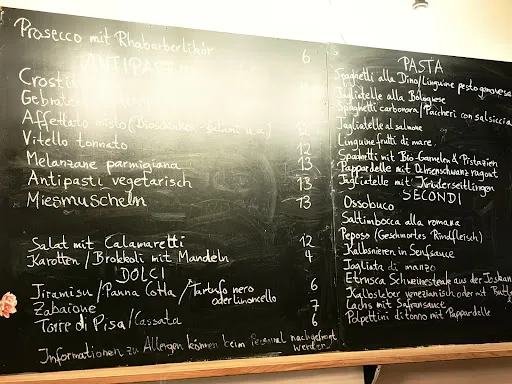 Prosecco mit Rhabarberlikör 6
ANTIPASTI
Crosti
Gebraten
Affettato misto (Bioschinken-Salami u.a.) 12
Vitello tonnato 12
Melanzane parmigiana 13
Antipasti vegetarisch 13
Miesmuscheln 13
Salat mit Calamaretti 12
Karotten / Brokkoli mit Mandeln 4
DOLCI
Tiramisu / Panna Cotta / Tartufo nero 6
oder limoncello
Zabaione 7
Torre di Pisa / Cassata 6
Informationen zu Allergen können beim Personal nachgefragt
werden
PASTA
Spaghetti alla Dino / Linguine pesto genovese
Tagliatelle alla Bolognese
Spaghetti carbonara / Paccheri con salsiccia
Tagliatelle al salmone
Linguine frutti di mare
Spaghetti mit Bio-Garnelen & Pistazien
Pappardelle mit Ochsenschwanzragout
Tagliatelle mit Kräuterseitlingen
SECONDI
Ossobuco
Saltimbocca alla romana
Peposo (Geschmortes Rindfleisch)
Kalbsnieren in Senfsauce
Tagliata di manzo
Etrusca Schweinesteak aus der Toskan
Kalbsleber venezianisch oder mit Butt
Lachs mit Safransauce
Polpettini di tonno mit Pappardelle